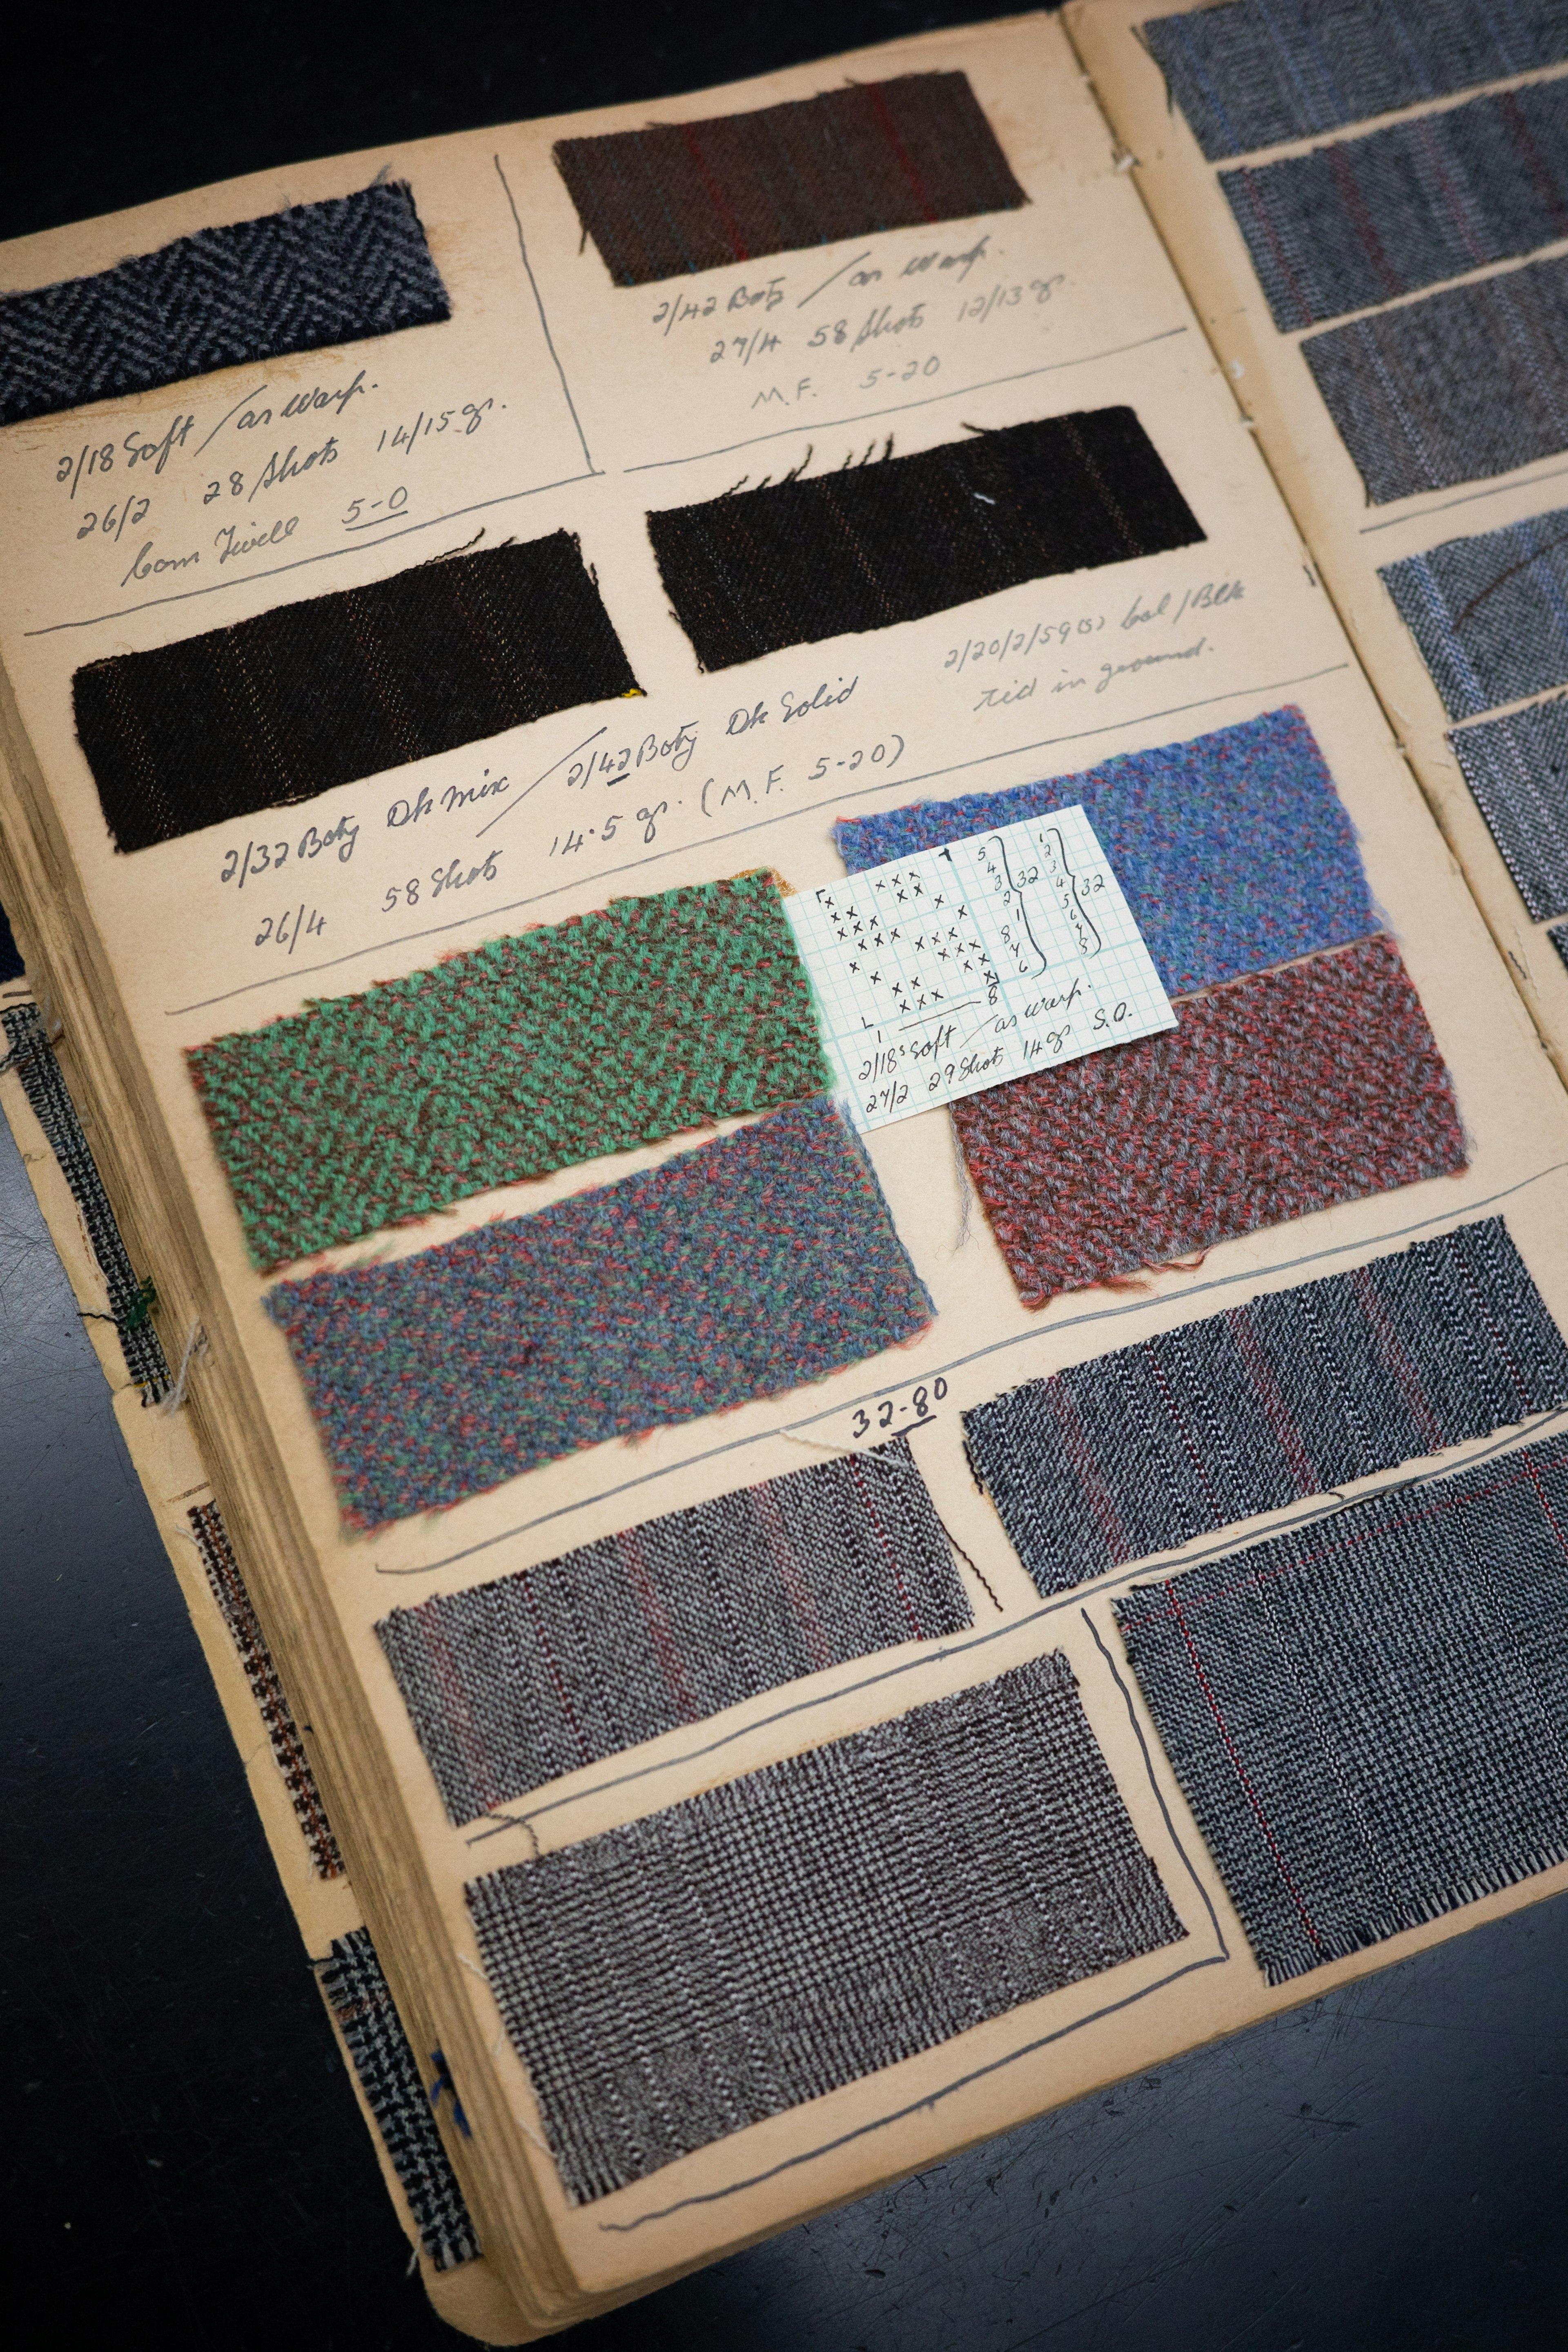 2/18 Soft / as Warp.
26/2 28 Shots 14/15 gr.
Com Twill 5-0
2/42 Boty / as Warp.
27/4 58 Shots 12/13 gr.
M.F. 5-20
2/20/2/59(s) Col / Blk
tied in ground.
2/32 Boty Dk Mix / 2/42 Boty Dk Solid
26/4 58 Shots 14.5 gr. (M.F. 5-20)
5 1
4 2
3 32 3
2 4 32
1 5
8 6
7 7
6 8
1 8
2/18s Soft / as Warp.
27/2 29 Shots 14 gr S.O.
32-80